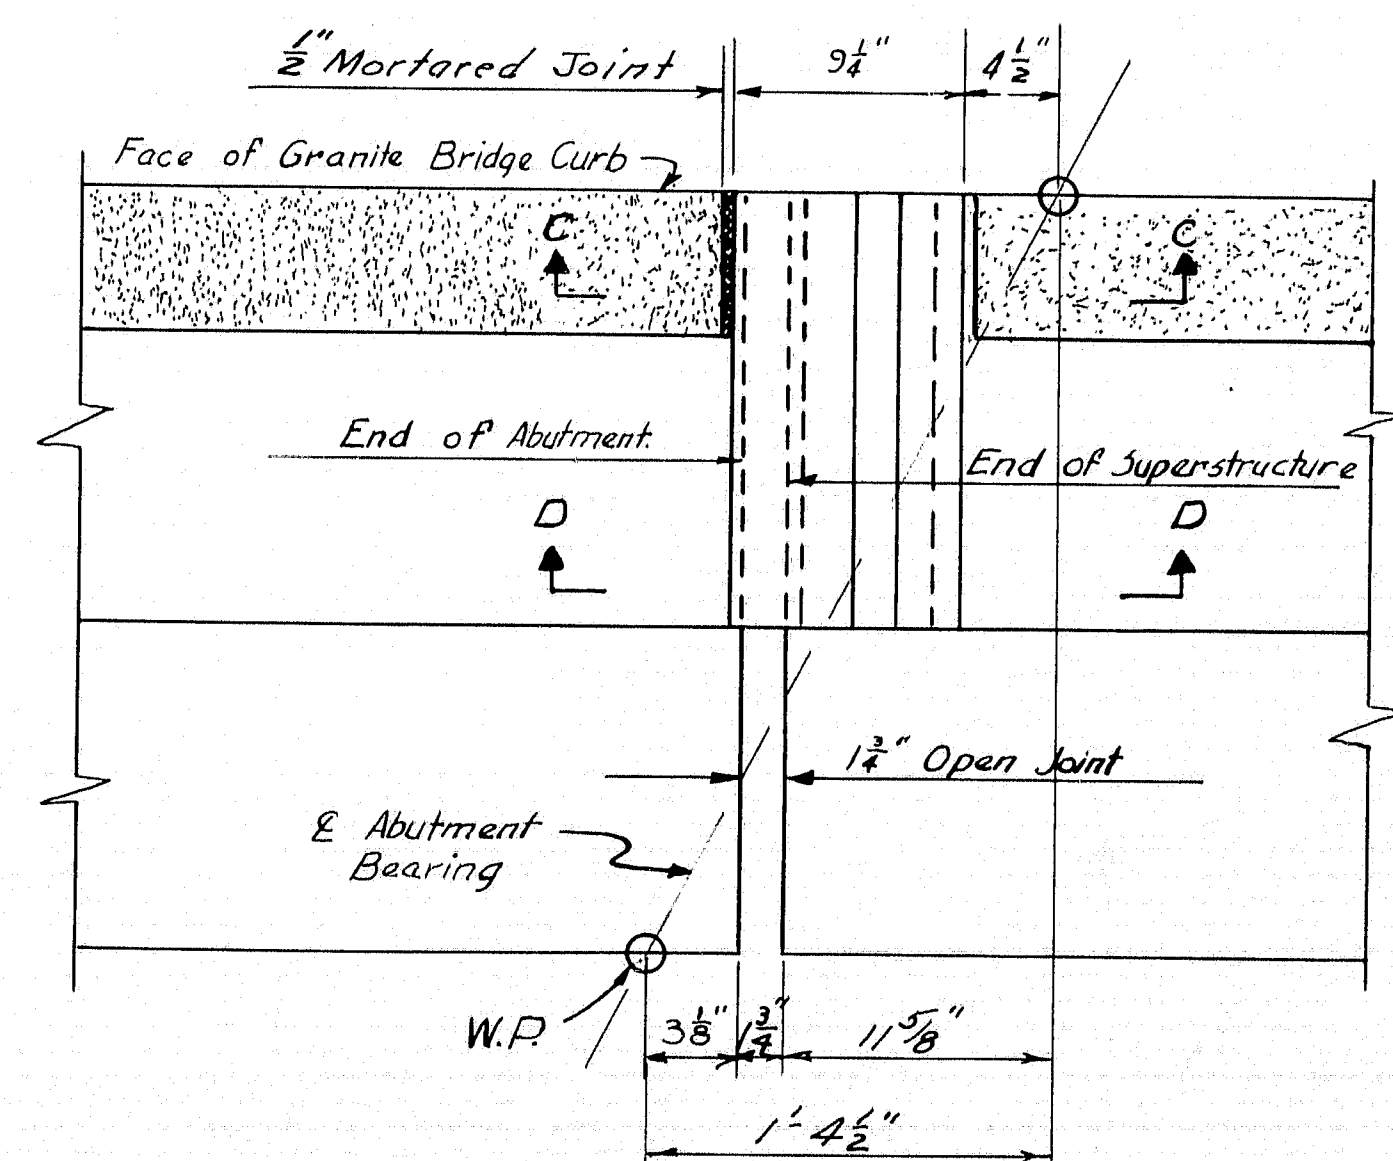 1/2" Mortared Joint
9 1/4"
4 1/2"
Face of Granite Bridge Curb
C
C
End of Abutment.
End of Superstructure
D
D
1 3/4" Open Joint
℄ Abutment
Bearing
W.P.
3 1/8"
1 3/4"
11 5/8"
1'-4 1/2"